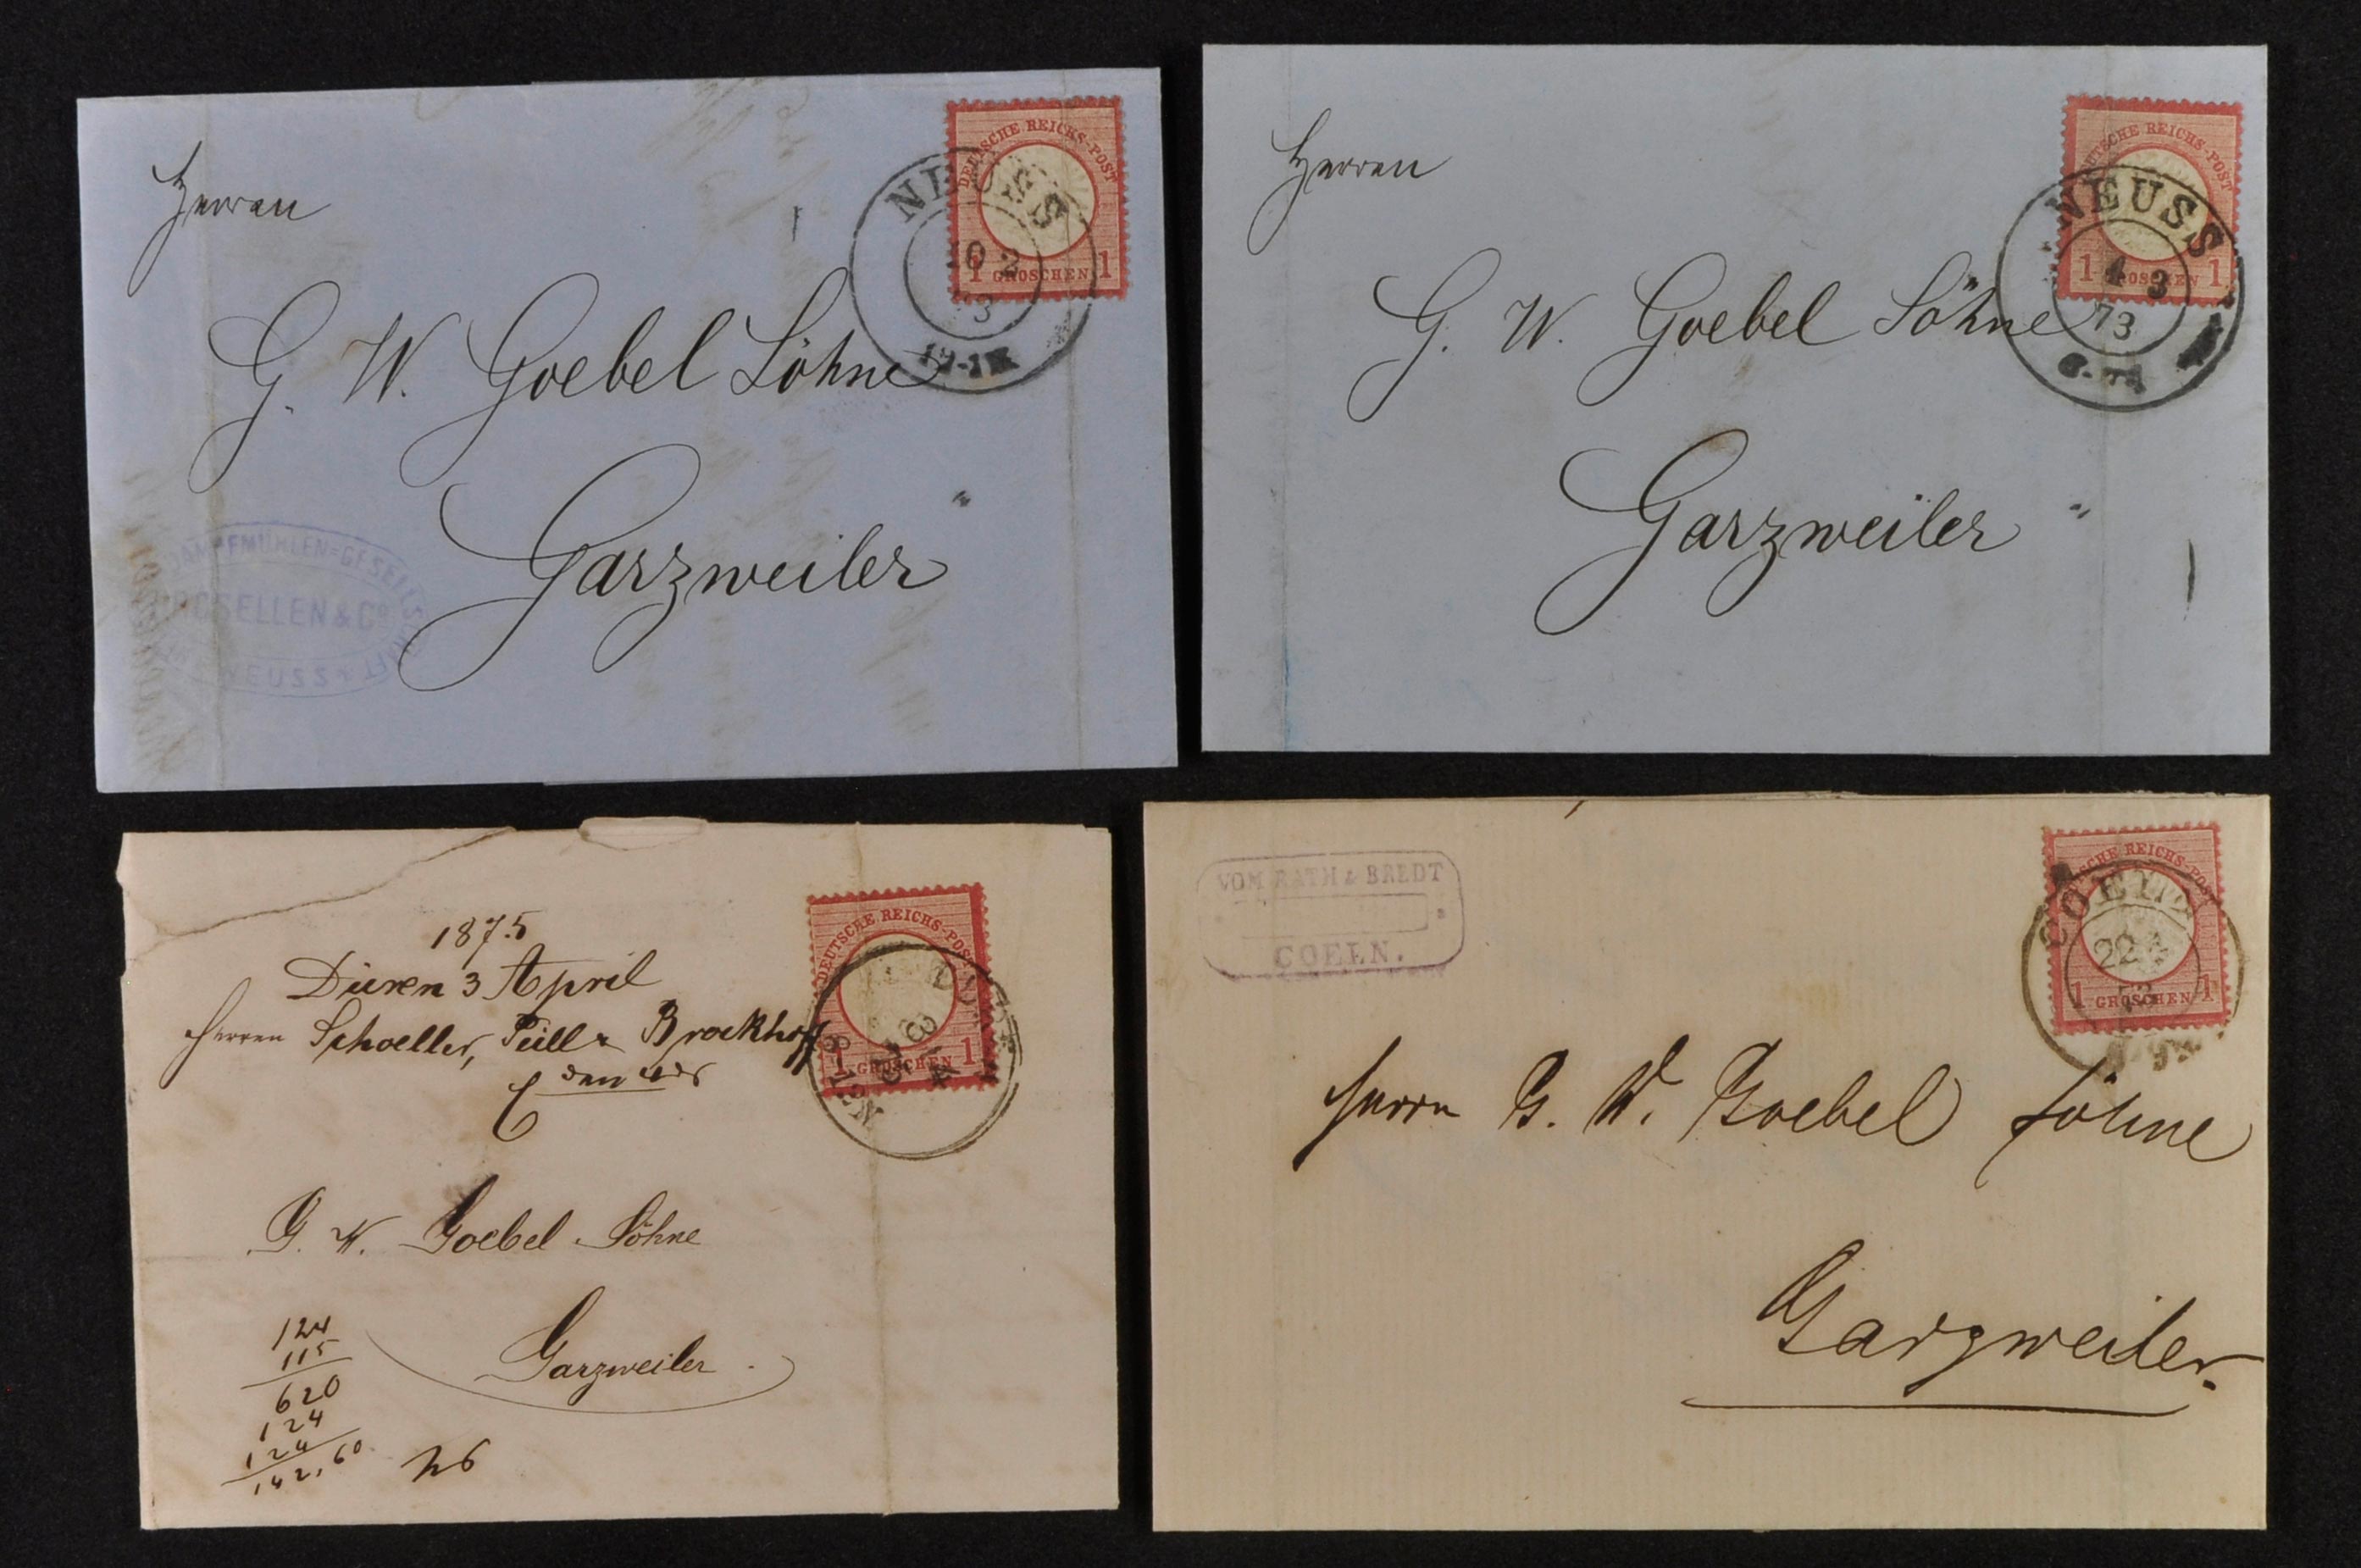 Herren
G. W. Goebel Söhne
Garzweiler
DEUTSCHE REICHS-POST
1 GROSCHEN 1
NEUSS
10 2
DAMPFMÜHLEN=GESELLSCHAFT
ROSELLEN & Co
NEUSS
Herren
G. W. Goebel Söhne
Garzweiler
DEUTSCHE REICHS-POST
1 GROSCHEN 1
NEUSS
4 3
73
1875
Düren 3 April
Herren Schoeller, Püll & Brockhoff
DEUTSCHE REICHS-POST
1 GROSCHEN 1
G. W. Goebel Söhne
Garzweiler
124
115
620
124
124
142,60
VOM RATH & BREDT
COELN.
DEUTSCHE REICHS-POST
1 GROSCHEN 1
COELN
22
Herrn G. W. Goebel Söhne
Garzweiler.